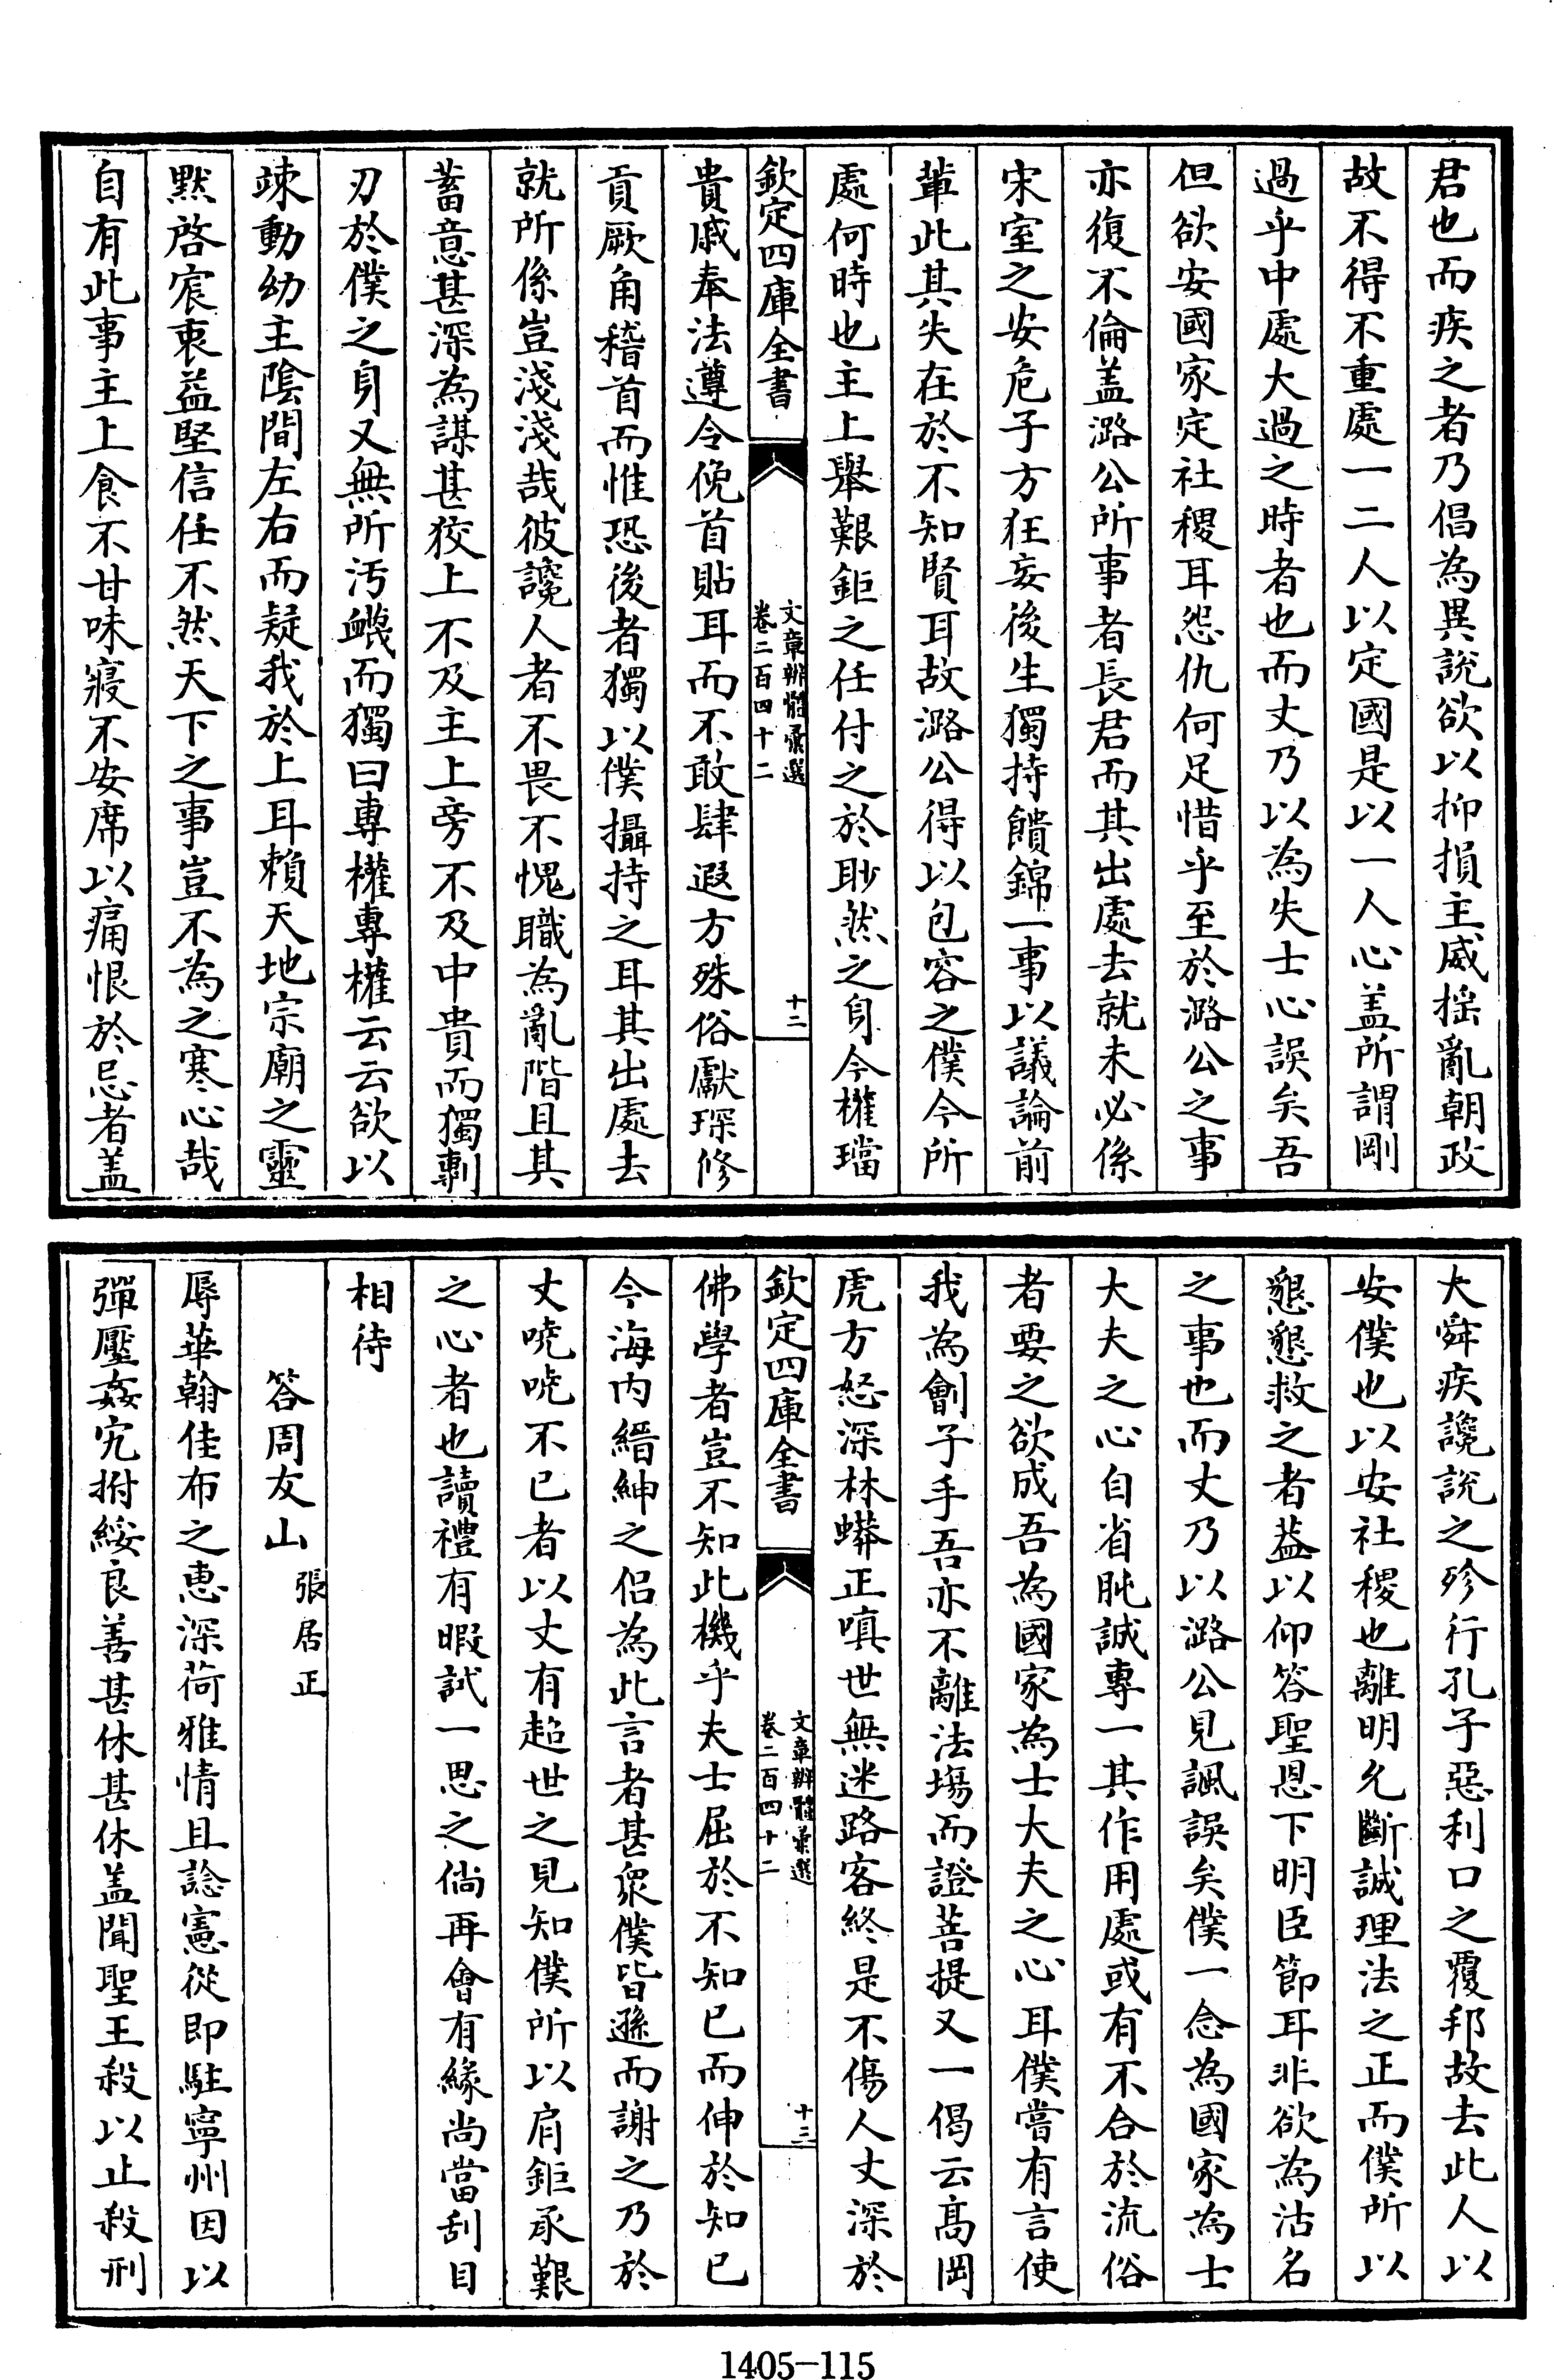 君也而疾之者乃倡為異說欲以抑損主威揺亂朝政
故不得不重處一二人以定國是以一人心盖所謂剛
過乎中處大過之時者也而丈乃以為失士心誤矣吾
但欲安國家定社稷耳怨仇何足惜乎至於潞公之事
亦復不倫盖潞公所事者長君而其出處去就未必係
宋室之安危子方狂妄後生獨持饋錦一事以議論前
軰此其失在於不知賢耳故潞公得以包容之僕今所
處何時也主上舉艱鉅之任付之於眇然之身今權璫
欽定四庫全書
文章辨體彚選
卷二百四十二
十二
貴戚奉法遵令俛首貼耳而不敢肆遐方殊俗獻琛修
貢厥角稽首而惟恐後者獨以僕攝持之耳其出處去
就所係豈淺淺哉彼讒人者不畏不愧職為亂階且其
蓄意甚深為謀甚狡上不及主上旁不及中貴而獨剚
刃於僕之身又無所汚衊而獨曰專權專權云云欲以
竦動幼主陰間左右而疑我於上耳賴天地宗廟之靈
黙啓宸衷益堅信任不然天下之事豈不為之寒心哉
自有此事主上食不甘味寢不安席以痛恨於忌者盖
大舜疾讒說之殄行孔子惡利口之覆邦故去此人以
安僕也以安社稷也離明允斷誠理法之正而僕所以
懇懇救之者葢以仰答聖恩下明臣節耳非欲為沽名
之事也而丈乃以潞公見諷誤矣僕一念為國家為士
大夫之心自省肫誠專一其作用處或有不合於流俗
者要之欲成吾為國家為士大夫之心耳僕嘗有言使
我為劊子手吾亦不離法塲而證菩提又一偈云高岡
虎方怒深林蟒正嗔世無迷路客終是不傷人丈深於
欽定四庫全書
文章辨體彚選
卷二百四十二
十三
佛學者豈不知此機乎夫士屈於不知已而伸於知已
今海内縉紳之侣為此言者甚衆僕皆遜而謝之乃於
丈嘵嘵不已者以丈有超世之見知僕所以肩鉅承艱
之心者也讀禮有暇試一思之倘再會有緣尚當刮目
相待
答周友山 張居正
辱華翰佳布之惠深荷雅情且諗憲從即駐寧州因以
彈壓姦宄拊綏良善甚休甚休盖聞聖王殺以止殺刑
1405-115